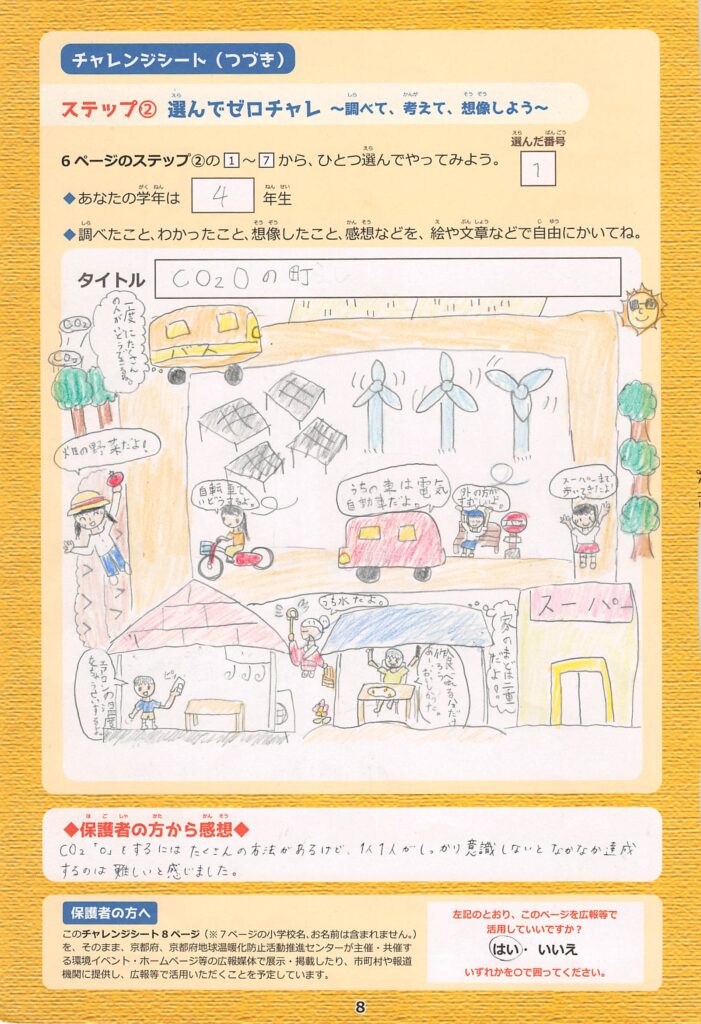 チャレンジシート（つづき）
ステップ② 選んでゼロチャレ ～調べて、考えて、想像しよう～
6ページのステップ②の1～7から、ひとつ選んでやってみよう。
選んだ番号
1
◆あなたの学年は 4 年生
◆調べたこと、わかったこと、想像したこと、感想などを、絵や文章などで自由にかいてね。
タイトル CO2 0の町
CO2
CO2
一度にたくさん
バス
畑の野菜だよ！
自転車で
いどうするよ。
うちの車は電気
自動車だよ。
外の方が
すずしいよ
スーパーまで
歩いてきたよ！
うち水だよ。
家のまどは二重
だよ。
スーパー
エアコンの温度
ピッ
食べれるだけ
作ろう
あーおいしかった。
◆保護者の方から感想◆
CO2「0」をするには たくさんの方法があるけど、1人1人がしっかり意識しないと なかなか達成
するのは 難しいと感じました。
保護者の方へ
このチャレンジシート8ページ（※7ページの小学校名、お名前は含まれません。）
を、そのまま、京都府、京都府地球温暖化防止活動推進センターが主催・共催す
る環境イベント・ホームページ等の広報媒体で展示・掲載したり、市町村や報道
機関に提供し、広報等で活用いただくことを予定しています。
左記のとおり、このページを広報等で
活用していいですか？
はい・いいえ
いずれかを○で囲ってください。
8